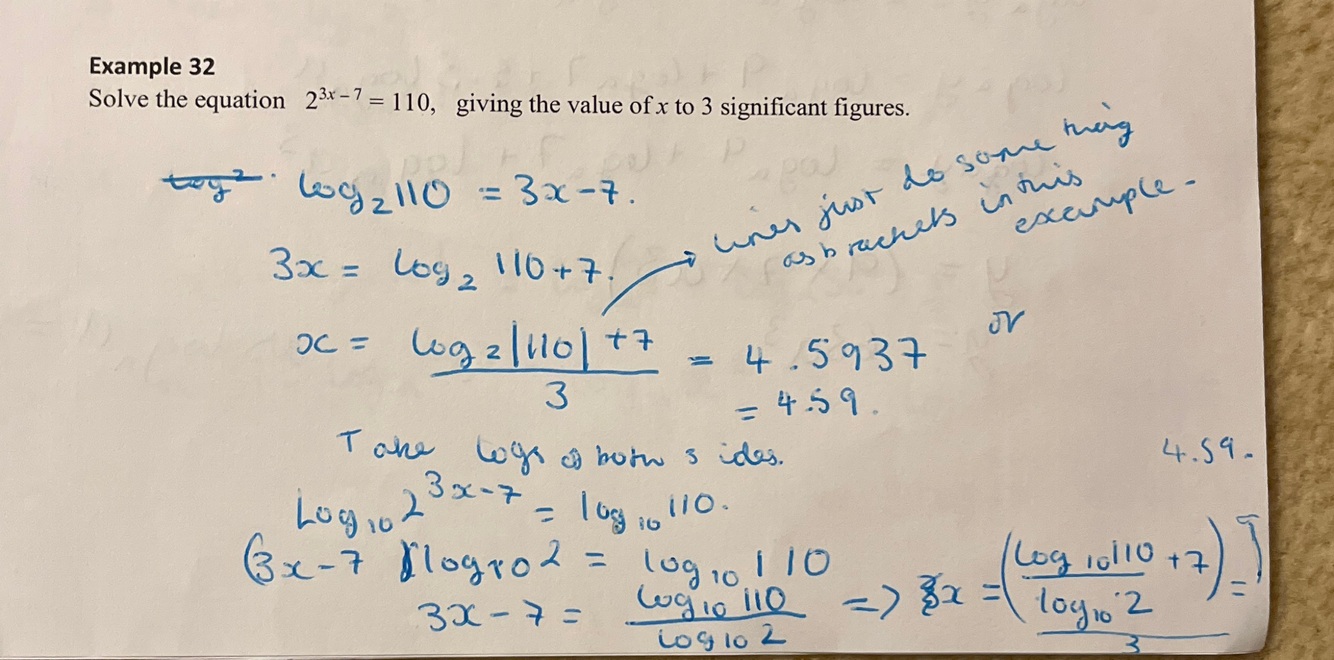 Example 32
Solve the equation 2^{3x-7} = 110, giving the value of x to 3 significant figures.
log_2 110 = 3x-7.
3x = log_2 110+7.
lines just do same thing
as brackets in this
example-
x = \frac{log_2|110| +7}{3} = 4.5937 or
= 4.59.
Take logs of both sides.
4.59.
Log_{10} 2^{3x-7} = log_{10} 110.
(3x-7) log_{10} 2 = log_{10} 110
3x-7 = \frac{log_{10} 110}{log_{10} 2} => x = \frac{(\frac{log_{10} 110}{log_{10} 2} +7)}{3} =